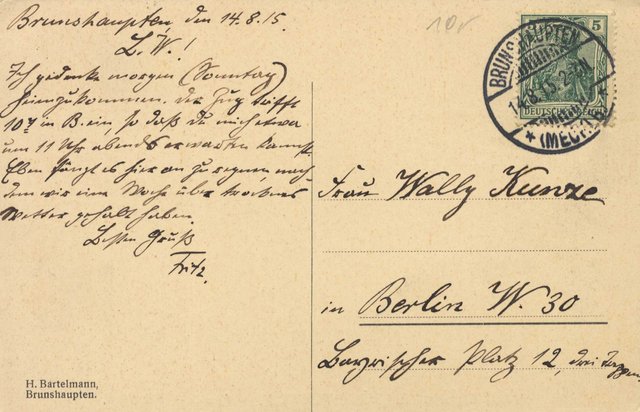 Brunshaupten, den 14.8.15.
L. W.!
Ich gedenke morgen (Sonntag)
heimzukommen. Der Zug trifft
10⁴⁷ in B. ein, so daß du mich etwa
um 11 Uhr abends erwarten kannst.
Eben fängt es hier an zu regnen, nach-
dem wir eine Woche über trockenes
Wetter gehabt haben.
Besten Gruß
Fritz.
H. Bartelmann,
Brunshaupten.
BRUNSHAUPTEN
14.8.15. 2-3N
* (MECKLB.) *
5
DEUTSCHES REICH
Frau Wally Kunze
in Berlin W. 30
Bayrischer Platz 12, drei Treppen